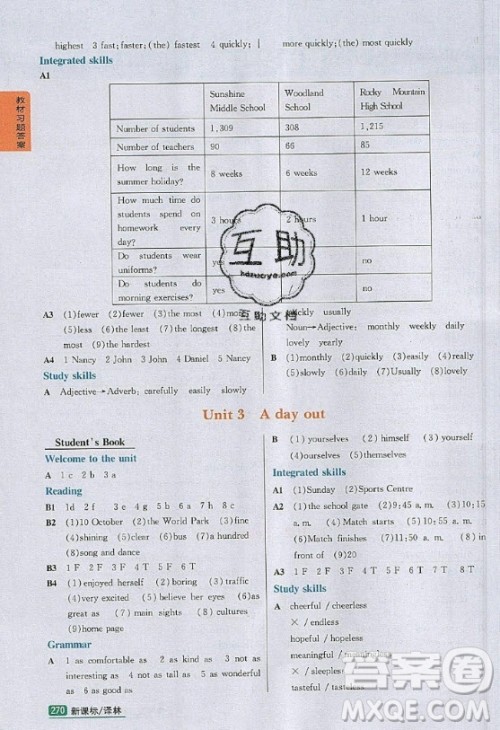 highest 3 fast;faster;(the) fastest 4 quickly;
more quickly;(the) most quickly
Integrated skills
A1
Sunshine Middle School
Woodland School
Rocky Mountain High School
Number of students 1,309 308 1,215
Number of teachers 90 66 85
How long is the summer holiday? 8 weeks 6 weeks 12 weeks
How much time do students spend on homework every day? 3 hours 2 hours 1 hour
Do students wear uniforms? yes no
Do students do morning exercises? yes no
A3 (1)fewer (2)fewer (3)the most (4)more
(5)less (6)the longest (7)the longest (8)
more (9)the hardest
A4 1 Nancy 2 John 3 John 4 Daniel 5 Nancy
Study skills
A Adjective→Adverb: carefully easily slowly
quickly usually
Noun→Adjective: monthly weekly daily
lovely yearly
B (1)quickly (2)usually (3)monthly (4)
Daily (5)carefully (6)lovely
Unit 3 A day out
Student's Book
Welcome to the unit
A 1c 2b 3a
Reading
B1 1d 2f 3g 4e 5a 6b 7c
B2 (1)10 October (2)the World Park (3)fine
(4)shining (5)clear (6)bus (7)excited
(8)song and dance
B3 1F 2F 3F 4T 5T 6F
B4 (1)enjoyed herself (2)boring (3)traffic
(4)very excited (5)believe her eyes (6)as
great as (7)main sights (8)cultures
(9)home page
Grammar
A 1 as comfortable as 2 as kind as 3 as
small as 4 as interesting as 5 as wonderful
as 6 as good as
B (1)yourselves (2)himself (3)yourself
(4)themselves (5)yourself (6)yourselves
Integrated skills
A1 (1)Sunday (2)Sports Centre
A2 (1)the school gate (2)9:45 a. m. (3)10:15
a. m. (4)Match starts (5)10:55 a. m.
(6)Match finishes (7)11:50 a. m. (8)in
front of (9)20
A3 1F 2T 3T 4T 5F 6T
Study skills
A cheerful / cheerless
× / endless
hopeful / hopeless
meaningful / meaningless
× / sleepless
tasteful / tasteless
270 新课标/译林
教材习题答案
互助
互助文档
答案圈
MXQE.COM